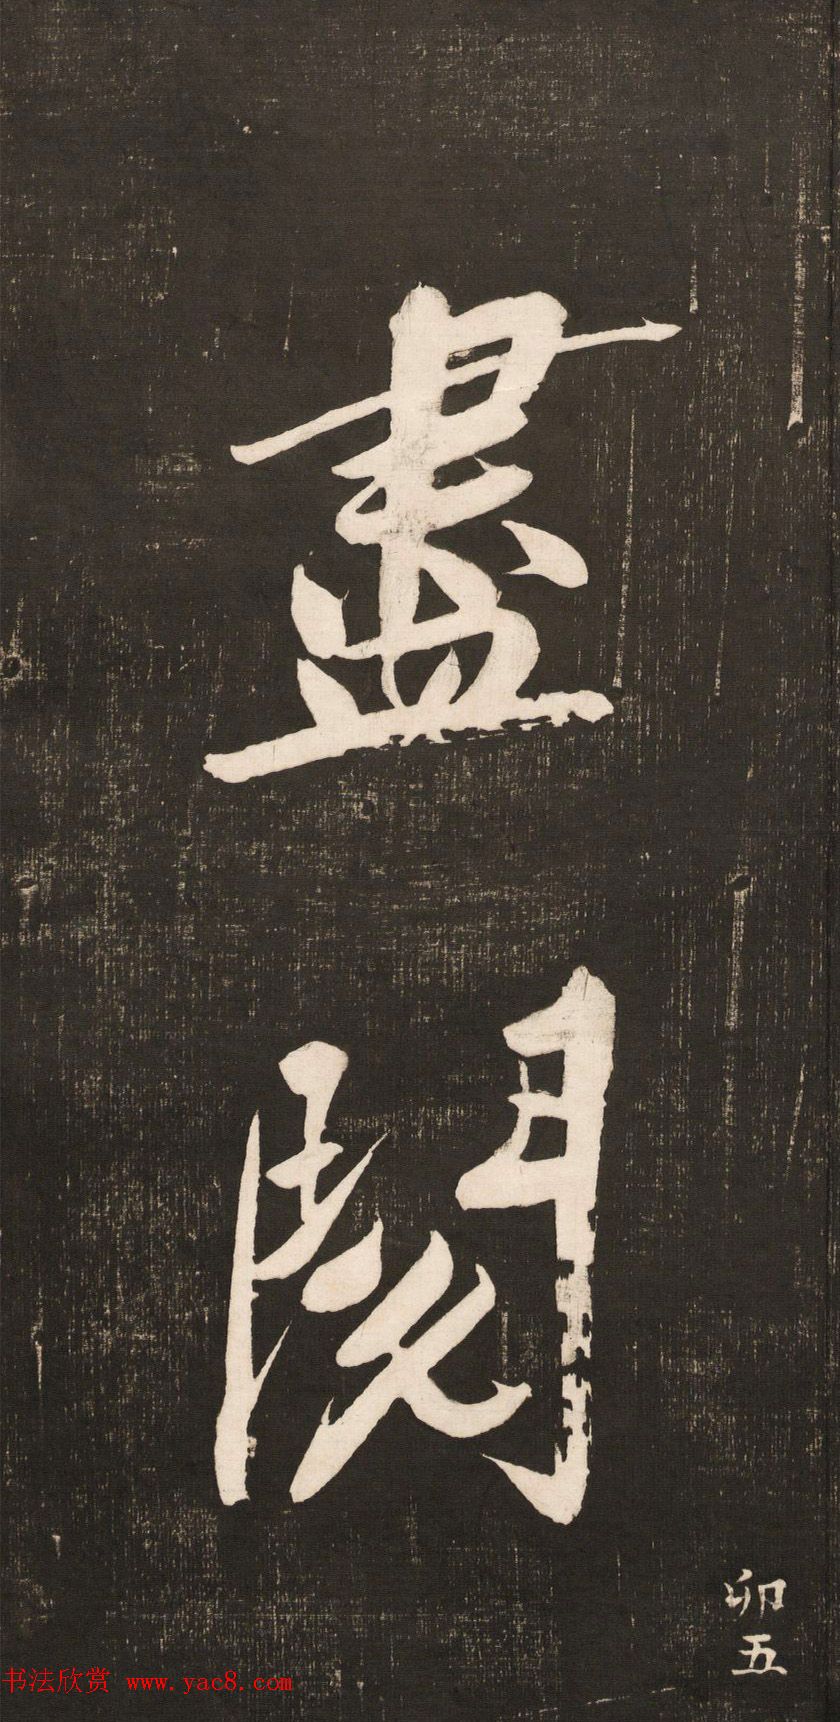 盡
閱
卯
五
书法欣赏 www.yac8.com